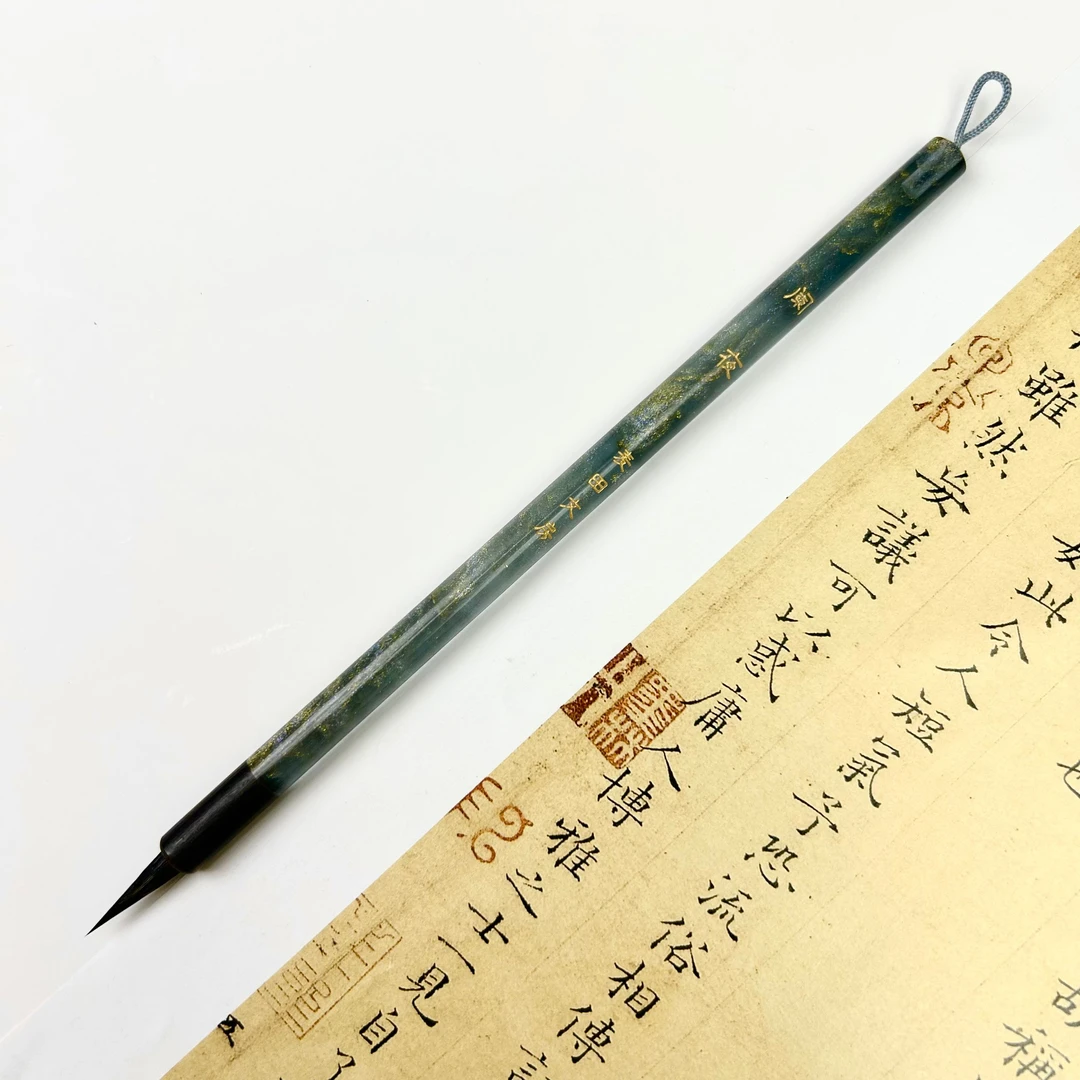 阑夜
麦田文房
稱
也
如此令人短氣予恐流俗相傳
雖然妄議可以惑庸人博雅之士一見自了